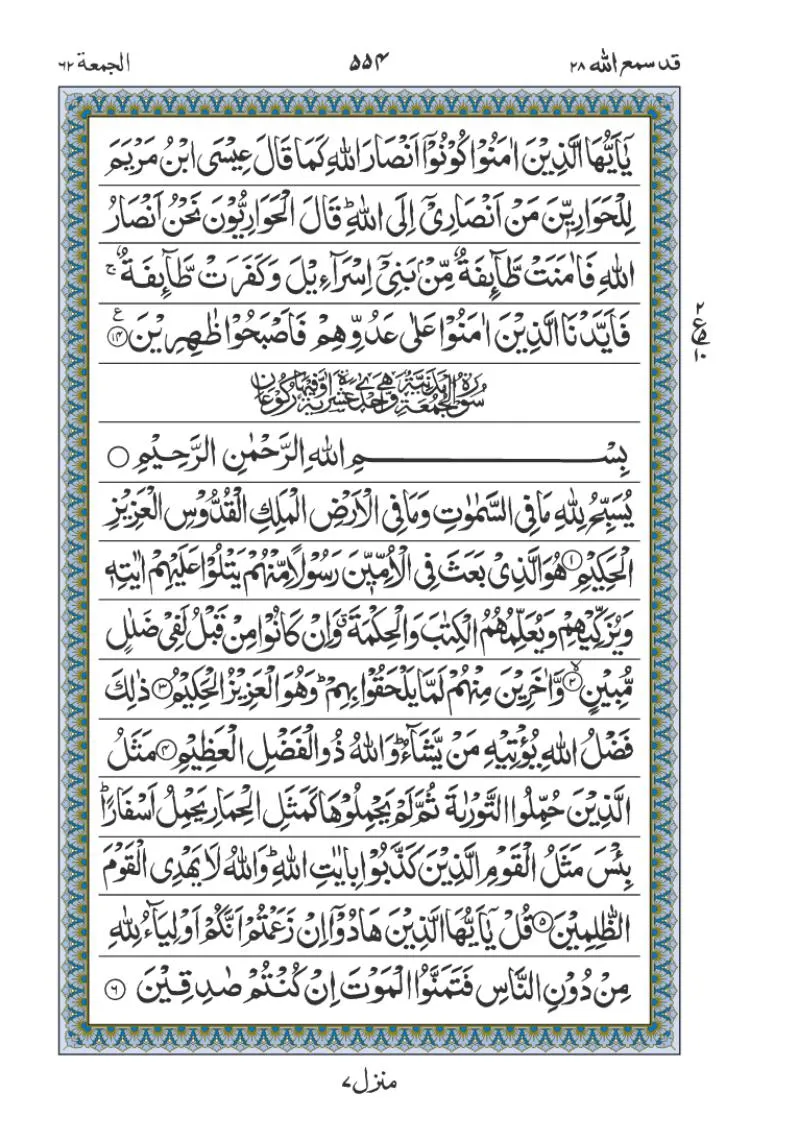 قد سمع الله ٢٨ ۵۵۴ الجمعة ٦٢
يٰۤاَيُّهَا الَّذِيْنَ اٰمَنُوْا كُوْنُوْۤا اَنْصَارَ اللّٰهِ كَمَا قَالَ عِيْسَى ابْنُ مَرْيَمَ
لِلْحَوَارِيّٖنَ مَنْ اَنْصَارِيْۤ اِلَى اللّٰهِ ؕ قَالَ الْحَوَارِيُّوْنَ نَحْنُ اَنْصَارُ
اللّٰهِ فَاٰمَنَتْ طَّآئِفَةٌ مِّنْۢ بَنِيْۤ اِسْرَآءِيْلَ وَكَفَرَتْ طَّآئِفَةٌ ۚ
فَاَيَّدْنَا الَّذِيْنَ اٰمَنُوْا عَلٰى عَدُوِّهِمْ فَاَصْبَحُوْا ظٰهِرِيْنَ ﴿۱۴﴾ ع
۲ ع ۵ ۱۰
سُوْرَةُ الْجُمُعَةِ مَدَنِيَّةٌ وَّهِيَ اِحْدٰى عَشْرَةَ اٰيَةً وَّفِيْهَا رُكُوْعَانِ
بِسْمِ اللّٰهِ الرَّحْمٰنِ الرَّحِيْمِ ○
يُسَبِّحُ لِلّٰهِ مَا فِي السَّمٰوٰتِ وَمَا فِي الْاَرْضِ الْمَلِكِ الْقُدُّوْسِ الْعَزِيْزِ
الْحَكِيْمِ ﴿۱﴾ هُوَ الَّذِيْ بَعَثَ فِي الْاُمِّيّٖنَ رَسُوْلًا مِّنْهُمْ يَتْلُوْا عَلَيْهِمْ اٰيٰتِهٖ
وَيُزَكِّيْهِمْ وَيُعَلِّمُهُمُ الْكِتٰبَ وَالْحِكْمَةَ ۗ وَاِنْ كَانُوْا مِنْ قَبْلُ لَفِيْ ضَلٰلٍ
مُّبِيْنٍ ﴿۲﴾ ۙ وَّاٰخَرِيْنَ مِنْهُمْ لَمَّا يَلْحَقُوْا بِهِمْ ؕ وَهُوَ الْعَزِيْزُ الْحَكِيْمُ ﴿۳﴾ ذٰلِكَ
فَضْلُ اللّٰهِ يُؤْتِيْهِ مَنْ يَّشَآءُ ؕ وَاللّٰهُ ذُو الْفَضْلِ الْعَظِيْمِ ﴿۴﴾ مَثَلُ
الَّذِيْنَ حُمِّلُوا التَّوْرٰىةَ ثُمَّ لَمْ يَحْمِلُوْهَا كَمَثَلِ الْحِمَارِ يَحْمِلُ اَسْفَارًا ؕ
بِئْسَ مَثَلُ الْقَوْمِ الَّذِيْنَ كَذَّبُوْا بِاٰيٰتِ اللّٰهِ ؕ وَاللّٰهُ لَا يَهْدِي الْقَوْمَ
الظّٰلِمِيْنَ ﴿۵﴾ قُلْ يٰۤاَيُّهَا الَّذِيْنَ هَادُوْۤا اِنْ زَعَمْتُمْ اَنَّكُمْ اَوْلِيَآءُ لِلّٰهِ
مِنْ دُوْنِ النَّاسِ فَتَمَنَّوُا الْمَوْتَ اِنْ كُنْتُمْ صٰدِقِيْنَ ﴿۶﴾
منزل ۷